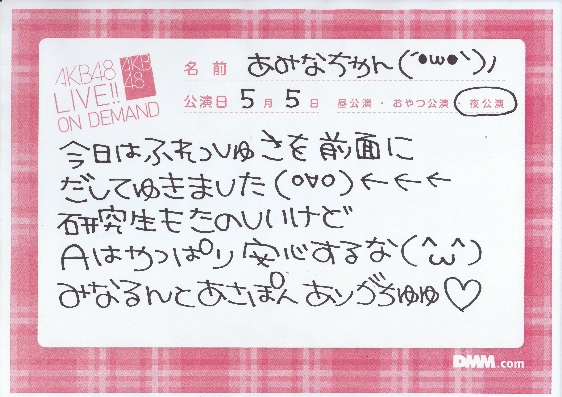 AKB48
LIVE!!
ON DEMAND
AKB
48
名前 あみなちゃん(´•ω•`)ノ
公演日 5月5日 昼公演・おやつ公演・夜公演
今日はふれっしゅさを前面に
だしてゆきました(○∀○)←←←
研究生もたのしいけど
Aはやっぱり安心するな(^ω^)
みなるんとあさぽんありがちゅゅ♡
DMM.com